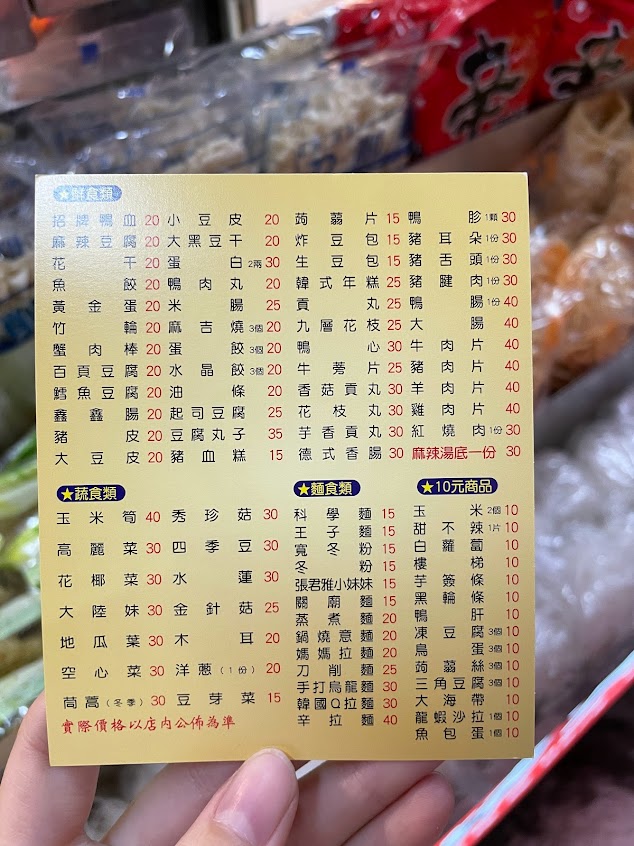 ★鮮食類
招牌鴨血 20 小豆皮 20 蒟蒻片 15 鴨胗 1顆 30
麻辣豆腐 20 大黑豆干 20 炸豆包 15 豬耳朵 1份 30
花干 20 蛋白 2兩 30 生豆包 15 豬舌頭 1份 30
魚餃 20 鴨肉丸 20 韓式年糕 25 豬腱肉 1份 30
黃金蛋 20 米腸 25 貢丸 25 鴨腸 1份 40
竹輪 20 麻吉燒 3個 20 九層花枝 25 大腸 40
蟹肉棒 20 蛋餃 3個 20 鴨心 30 牛肉片 40
百頁豆腐 20 水晶餃 3個 20 牛蒡片 25 豬肉片 40
鱈魚豆腐 20 油條 20 香菇貢丸 30 羊肉片 40
鑫鑫腸 20 起司豆腐 25 花枝丸 30 雞肉片 40
豬皮 20 豆腐丸子 35 芋香貢丸 30 紅燒肉 1份 30
大豆皮 20 豬血糕 15 德式香腸 30 麻辣湯底一份 30
★蔬食類
玉米筍 40 秀珍菇 30
高麗菜 30 四季豆 30
花椰菜 30 水蓮 30
大陸妹 30 金針菇 25
地瓜葉 30 木耳 20
空心菜 30 洋蔥(1份) 20
茼蒿(冬季) 30 豆芽菜 15
實際價格以店內公佈為準
★麵食類
科學麵 15
王子麵 15
寬冬粉 15
冬粉 15
張君雅小妹妹 15
關廟麵 15
蒸煮麵 20
鍋燒意麵 20
媽媽拉麵 20
刀削麵 25
手打烏龍麵 30
韓國Q拉麵 30
辛拉麵 40
★10元商品
玉米 2個 10
甜不辣 1片 10
白蘿蔔 10
樓梯 10
芋簽條 10
黑輪條 10
鴨肝 10
凍豆腐 3個 10
鳥蛋 3個 10
蒟蒻絲 3個 10
三角豆腐 3個 10
大海帶 10
龍蝦沙拉 1個 10
魚包蛋 1個 10
辛